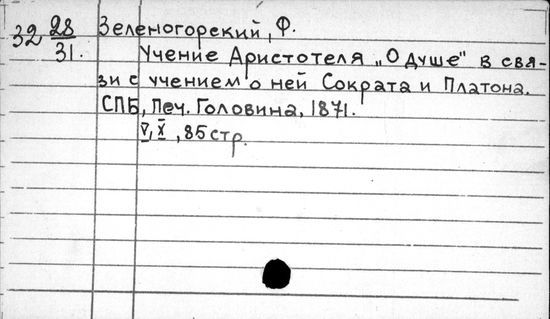 32 28/31.
Зеленогорский, Ф.
Учение Аристотеля „О душе" в свя-
зи с учением о ней Сократа и Платона.
СПБ, Печ. Головина, 1871.
V, X, 85 стр.